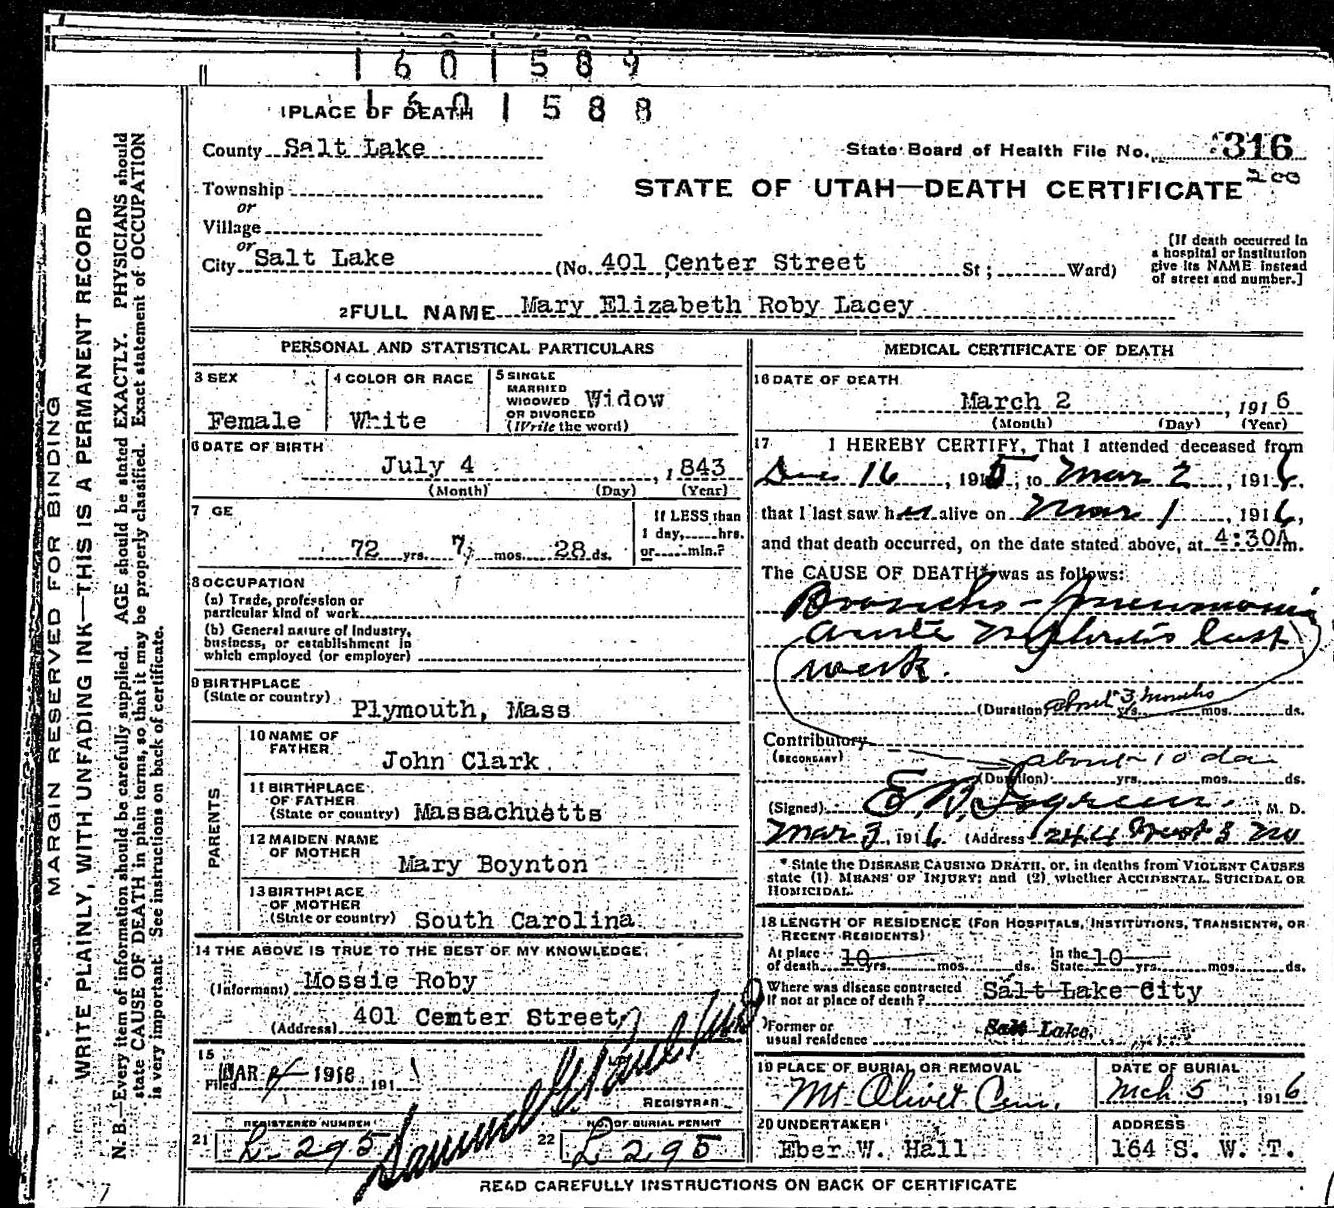 1 6 0 1 5 8 9
1 6 0 1 5 8 8
1 PLACE OF DEATH
County Salt Lake
State Board of Health File No. 316
200
Township
STATE OF UTAH—DEATH CERTIFICATE
or
Village
or
City Salt Lake (No. 401 Center Street St ; Ward)
[If death occurred in a hospital or institution give its NAME instead of street and number.]
2 FULL NAME Mary Elizabeth Roby Lacey
PERSONAL AND STATISTICAL PARTICULARS
3 SEX
Female
4 COLOR OR RACE
White
5 SINGLE
MARRIED
WIDOWED
OR DIVORCED
(Write the word)
Widow
6 DATE OF BIRTH
July 4 , 1843
(Month) (Day) (Year)
7 GE
72 yrs. 7 mos. 28 ds.
If LESS than
1 day, hrs.
or min.?
8 OCCUPATION
(a) Trade, profession or
particular kind of work
(b) General nature of Industry,
business, or establishment in
which employed (or employer)
9 BIRTHPLACE
(State or country) Plymouth, Mass
PARENTS
10 NAME OF
FATHER
John Clark
11 BIRTHPLACE
OF FATHER
(State or country) Massachuetts
12 MAIDEN NAME
OF MOTHER
Mary Boynton
13 BIRTHPLACE
OF MOTHER
(State or country) South Carolina
14 THE ABOVE IS TRUE TO THE BEST OF MY KNOWLEDGE
(Informant) Mossie Roby
(Address) 401 Center Street
15
Filed MAR 1916 191
REGISTRAR
REGISTERED NUMBER
21 L-295
NO. OF BURIAL PERMIT
22 L 295
MEDICAL CERTIFICATE OF DEATH
16 DATE OF DEATH
March 2 , 1916
(Month) (Day) (Year)
17 I HEREBY CERTIFY, That I attended deceased from
Dec 16 , 1915, to Mar 2 , 1916,
that I last saw her alive on Mar 1 , 1916,
and that death occurred, on the date stated above, at 4:30A m.
The CAUSE OF DEATH* was as follows:
Broncho-Pneumonia
acute Nephritis last
week.
(Duration) about 3 months yrs. mos. ds.
Contributory
(SECONDARY)
about 10 da
(Duration) yrs. mos. ds.
(Signed) E. M. D.
Mar 3, 1916 (Address 244
* State the DISEASE CAUSING DEATH, or, in deaths from VIOLENT CAUSES
state (1) MEANS OF INJURY; and (2) whether ACCIDENTAL, SUICIDAL OR
HOMICIDAL.
18 LENGTH OF RESIDENCE (FOR HOSPITALS, INSTITUTIONS, TRANSIENTS, OR
RECENT RESIDENTS)
At place of death 10 yrs. mos. ds. In the State 10 yrs. mos. ds.
Where was disease contracted
if not at place of death? Salt Lake City
Former or
usual residence Salt Lake
19 PLACE OF BURIAL OR REMOVAL
Mt. Olivet Cem.
DATE OF BURIAL
Mch 5 , 1916
20 UNDERTAKER
Eber W. Hall
ADDRESS
164 S. W. T.
READ CAREFULLY INSTRUCTIONS ON BACK OF CERTIFICATE
MARGIN RESERVED FOR BINDING
WRITE PLAINLY, WITH UNFADING INK—THIS IS A PERMANENT RECORD
N. B.—Every item of information should be carefully supplied. AGE should be stated EXACTLY. PHYSICIANS should
state CAUSE OF DEATH in plain terms, so that it may be properly classified. Exact statement of OCCUPATION
is very important. See instructions on back of certificate.